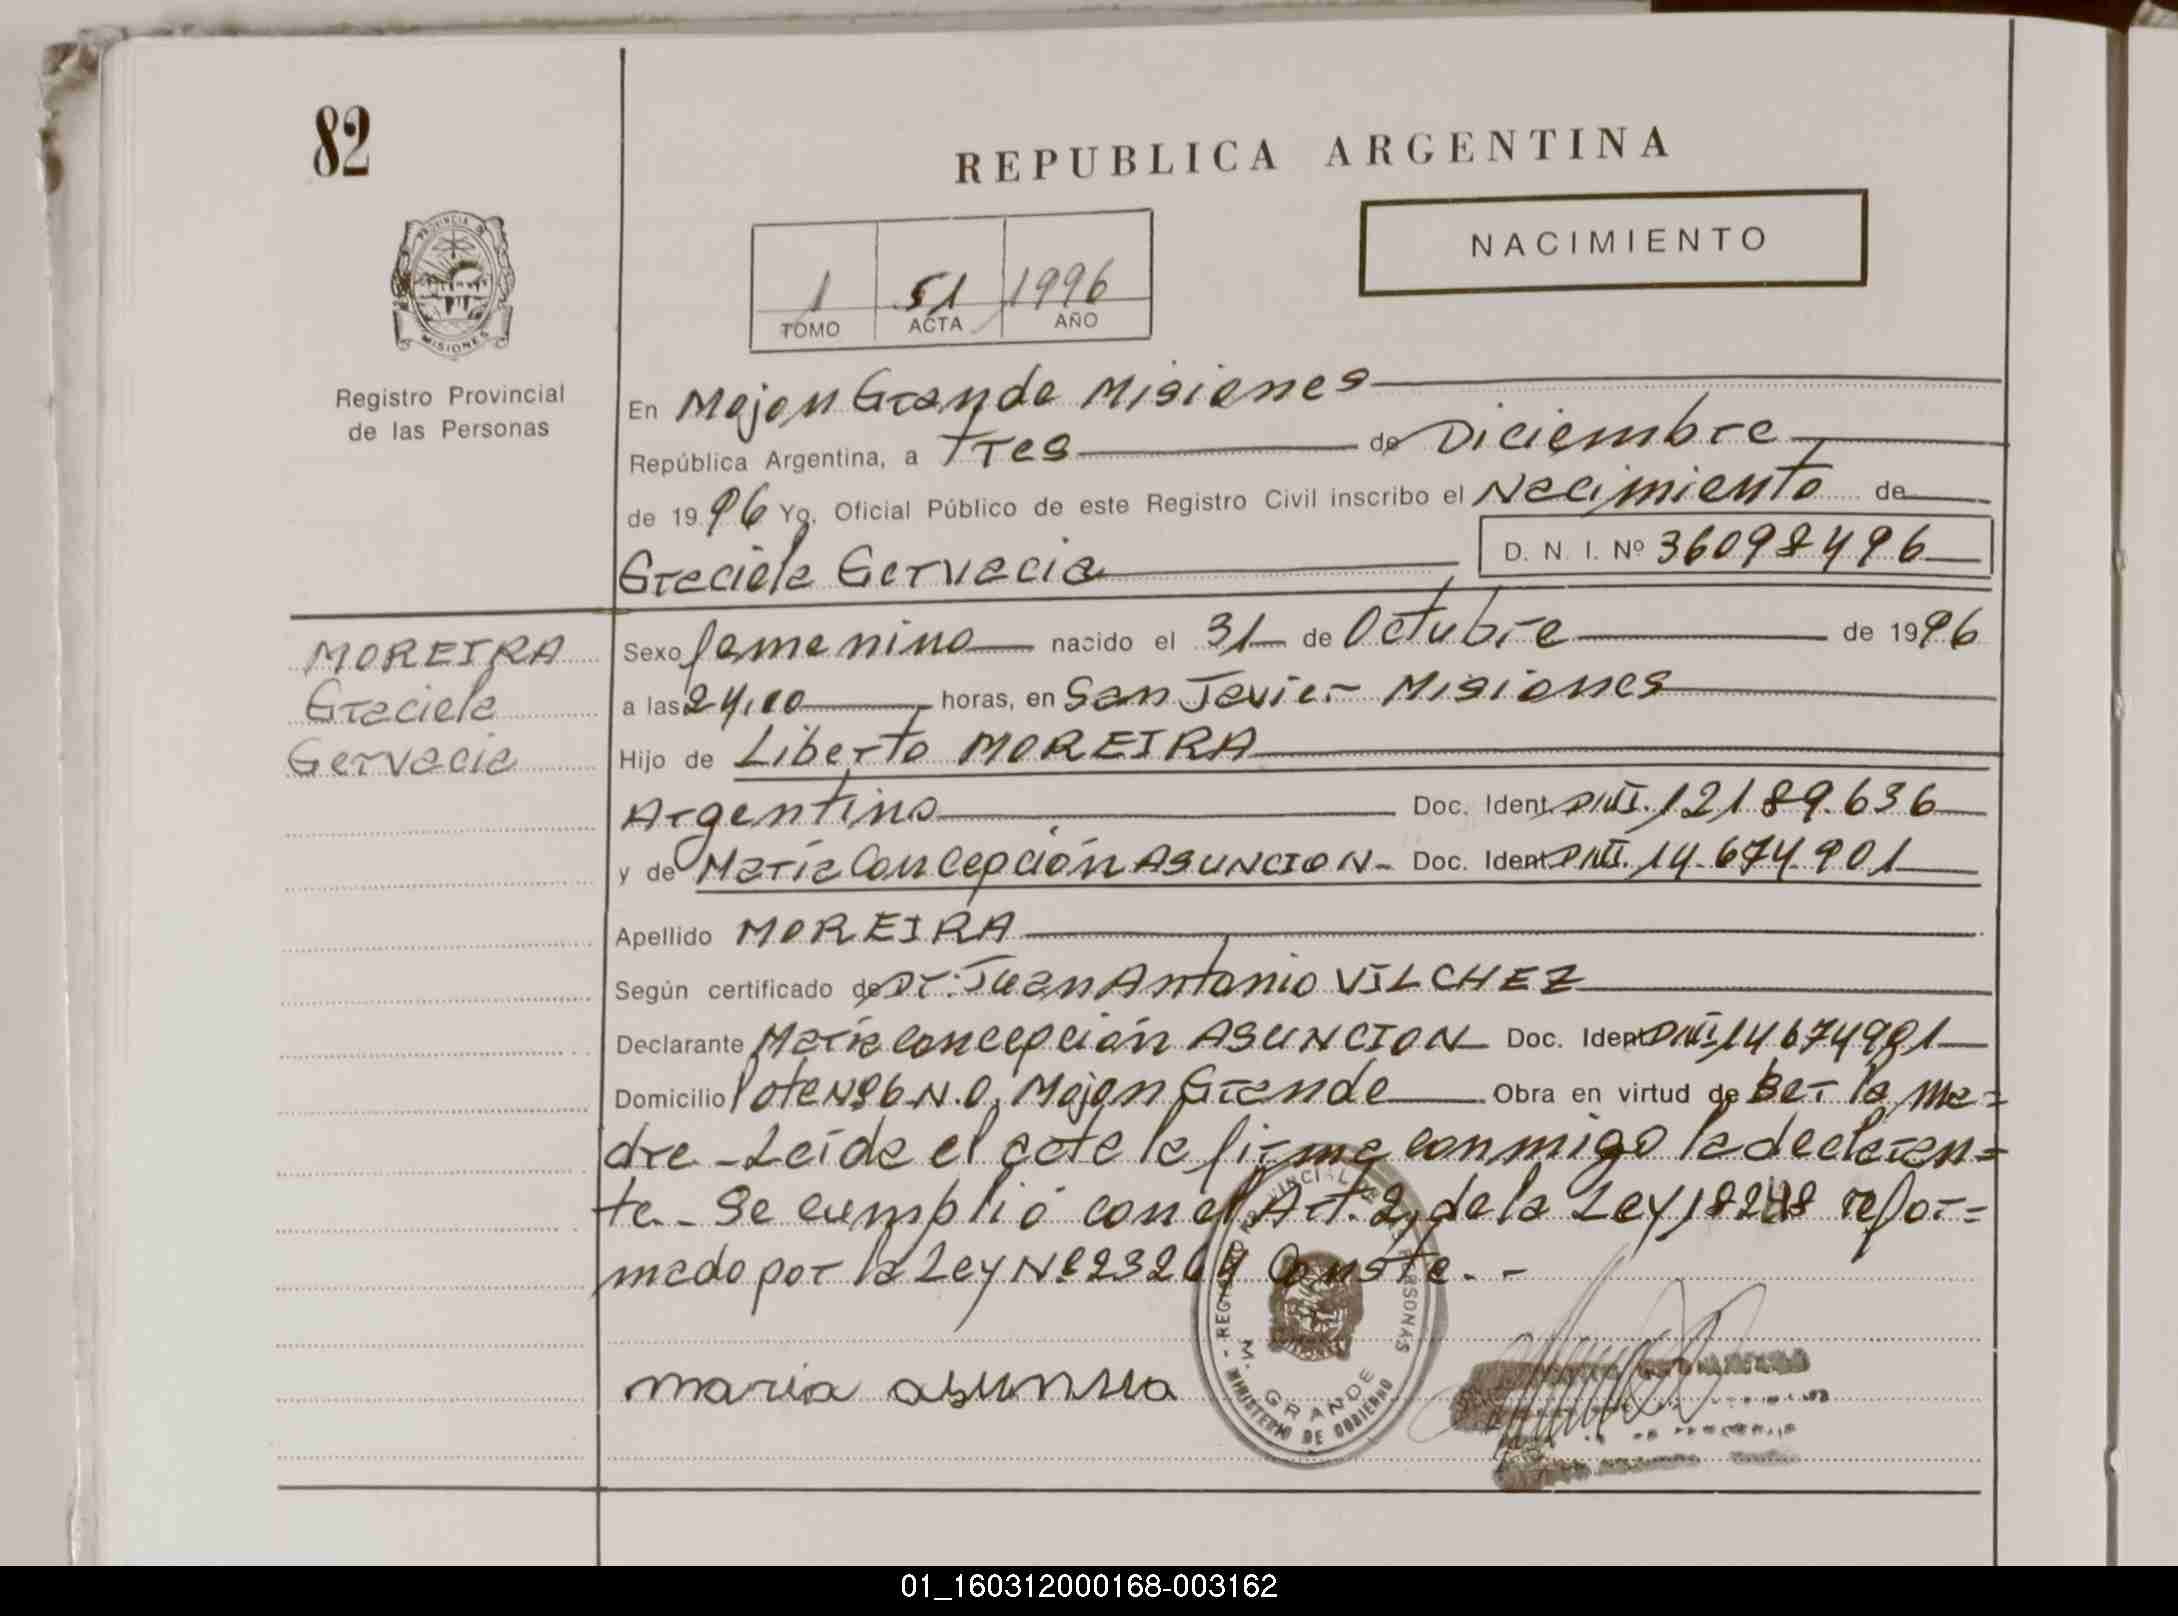 82
REPUBLICA ARGENTINA
PROVINCIA DE
MISIONES
NACIMIENTO
1 51 1996
TOMO ACTA AÑO
Registro Provincial
de las Personas
En Mojon Grande Misiones
República Argentina, a Tres de Diciembre
de 1996 Yo, Oficial Público de este Registro Civil inscribo el Nacimiento de
Graciela Gervacia D. N. I. Nº 36098496
MOREIRA
Graciela
Gervacia
Sexo femenino nacido el 31 de Octubre de 1996
a las 24,00 horas, en San Javier Misiones
Hijo de Liberto MOREIRA
Argentino Doc. Ident. DNI. 12189.636
y de María Concepción ASUNCION Doc. Ident. DNI. 14.674.901
Apellido MOREIRA
Según certificado de Dr. Juan Antonio VILCHEZ
Declarante María Concepción ASUNCION Doc. Ident. DNI. 14674901
Domicilio lote Nº 96 N.O. Mojon Grande Obra en virtud de Ser la ma=
dre - Leída el acta la firma conmigo la declaran=
te. - Se cumplió con el Art. 2, de la Ley 18248 refor=
mado por la Ley Nº 23264 Conste. -
maria asunsua
M. GRANDE
MINISTERIO DE GOBIERNO
01_160312000168-003162